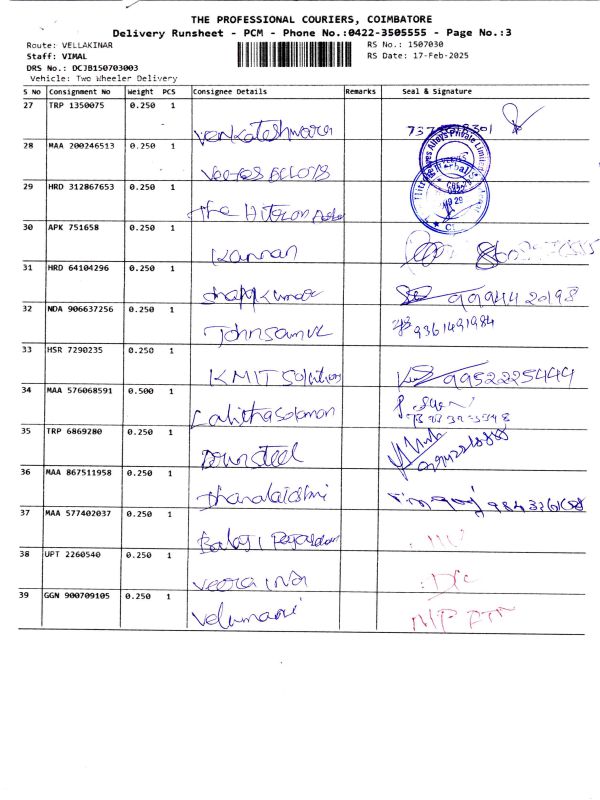 THE PROFESSIONAL COURIERS, COIMBATORE
Delivery Runsheet - PCM - Phone No.:0422-3505555 - Page No.:3
Route: VELLAKINAR RS No.: 1507030
Staff: VIMAL RS Date: 17-Feb-2025
DRS No.: DCJB150703003
Vehicle: Two Wheeler Delivery
S No Consignment No Weight PCS Consignee Details Remarks Seal & Signature
27 TRP 1350075 0.250 1
Venkateshwara
28 MAA 200246513 0.250 1
Veeges Alloys
29 HRD 312867653 0.250 1
The Hitecon
30 APK 751658 0.250 1
Kannan
31 HRD 64104296 0.250 1
99944 20198
32 NDA 906637256 0.250 1
Johnsamuel 9361491984
33 HSR 7290235 0.250 1
KMIT Solutions 9952225444
34 MAA 576068591 0.500 1
Lalithasolomon
35 TRP 6869280 0.250 1
steel
36 MAA 867511958 0.250 1
37 MAA 577402037 0.250 1
Balaji
38 UPT 2260540 0.250 1
Veera
39 GGN 900709105 0.250 1
Velumani